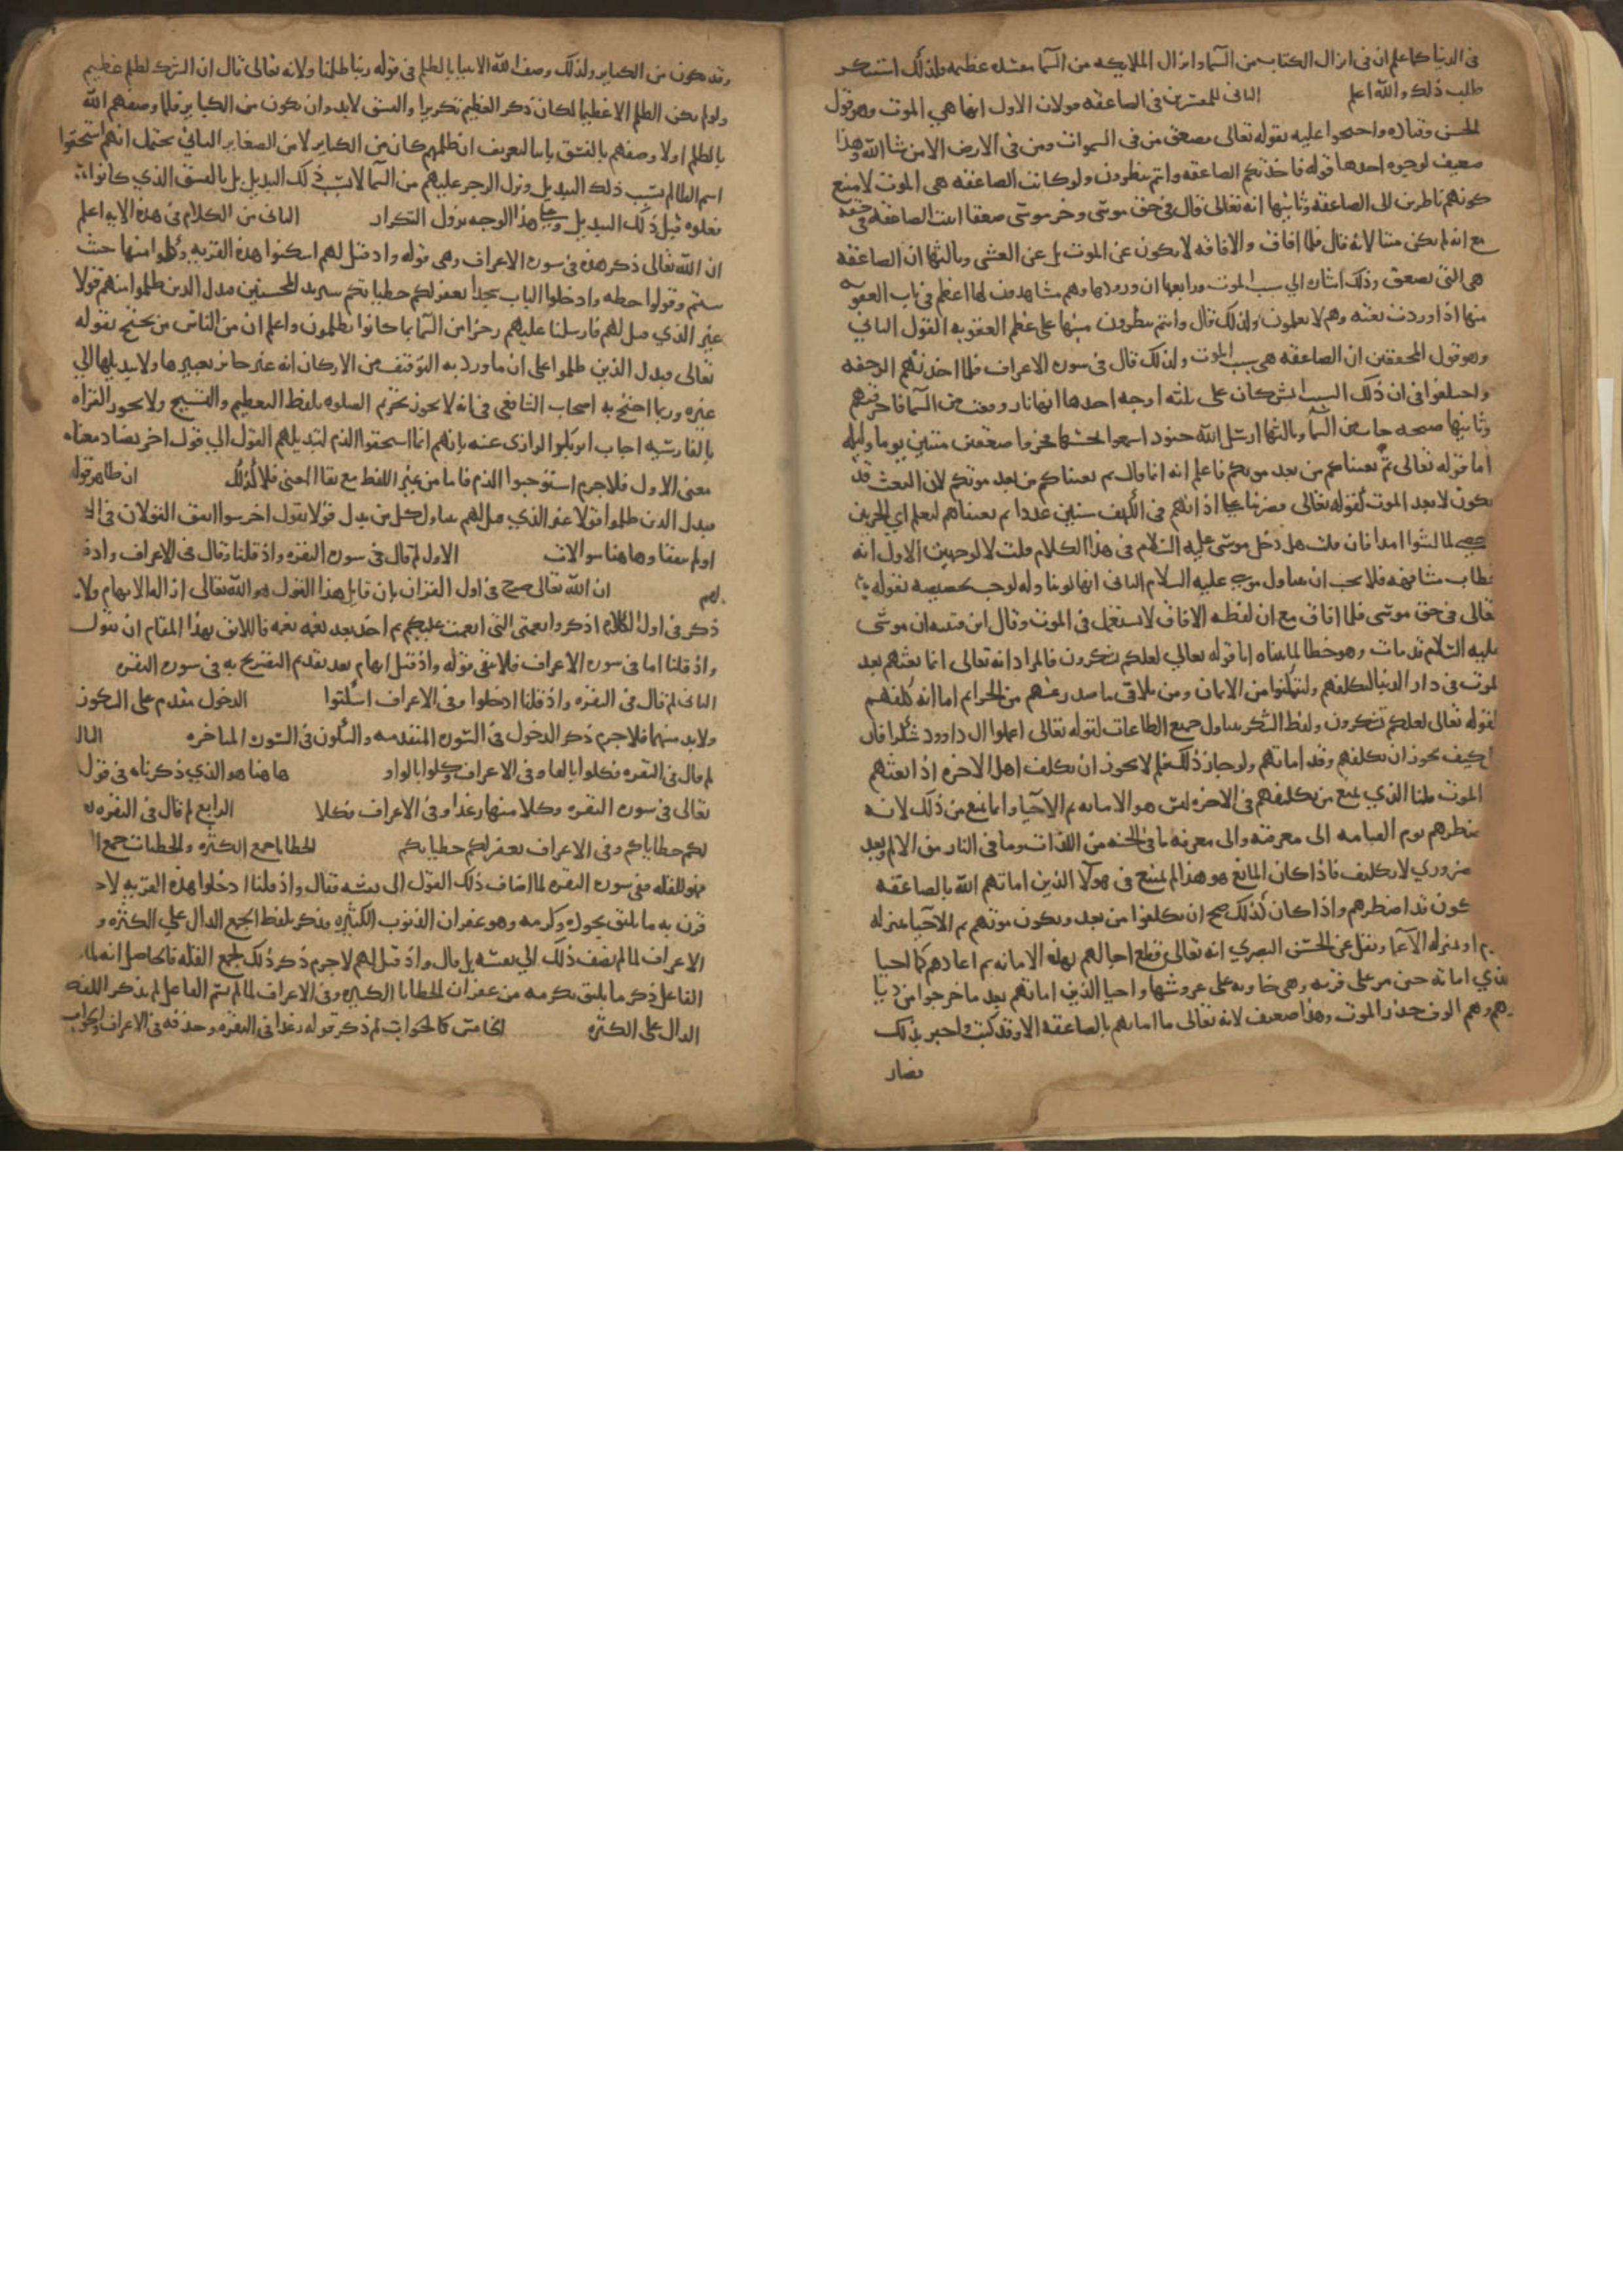 في الدنيا كما علم ان في انزال الكتاب من السما وانزال الملايكه من السما مفسده عظيمه ولذلك استنكر
طلب ذلك والله اعلم الثاني للمفسرين في الصاعقه قولان الاول انها هي الموت وهو قول
الحسن وقتاده واحتجوا عليه بقوله تعالى فصعق من في السموات ومن في الارض الا من شا الله وهذا
ضعيف لوجوه احدها قوله فاخذتكم الصاعقه وانتم تنظرون ولو كانت الصاعقه هي الموت لامتنع
كونهم ناظرين الى الصاعقه وثانيها انه تعالى قال في حق موسى وخر موسى صعقا اثبت الصاعقه في حقه
مع انه لم يكن ميتا لانه قال فلما افاق والافاقه لا يكون عن الموت بل عن الغشي وثالثها ان الصاعقه
هي التي تصعق وذلك اشاره الي سبب الموت ورابعها ان ورودها وهم مشاهدون لها اعظم في باب العقوبه
منها اذا وردت بغته وهم لا يعلمون ولذلك قال وانتم تنظرون منبها على عظم العقوبه القول الثاني
وهو قول المحققين ان الصاعقه هي سبب الموت ولذلك قال في سوره الاعراف فلما اخذتهم الرجفه
واختلفوا في ان ذلك السبب ايش كان على ثلثه اوجه احدها انها نار وقعت من السما فاحرقتهم
وثانيها صيحه جات من السما وثالثها ارسل الله جنودا سمعوا بحسها فخروا صعقين ميتين يوما وليله
اما قوله تعالى ثم بعثناكم من بعد موتكم فاعلم انه انما قال ثم بعثناكم من بعد موتكم لان البعث قد
يكون لا بعد الموت لقوله تعالى فضربنا على اذانهم في الكهف سنين عددا ثم بعثناهم لنعلم اي الحزبين
احصى لما لبثوا امدا فان قلت هل دخل موسى عليه السلام في هذا الكلام قلت لا لوجهين الاول انه
خطاب مشافهه فلا يجب ان يتناول موسى عليه السلام الثاني انه لو تناوله لوجب تخصيصه بقوله
تعالى في حق موسى فلما افاق مع ان لفظه الافاق لا تستعمل في الموت وقال ابن قتيبه ان موسى
عليه السلام قد مات وهو خطا لما بيناه اما قوله تعالي لعلكم تشكرون فالمراد انه تعالى انما بعثهم بعد
لموت في دار الدنيا ليكلفهم وليتمكنوا من الايمان ومن تلافي ما صدر عنهم من الجرايم اما انه كلفهم
لقوله تعالى لعلكم تشكرون ولفظ الشكر يتناول جميع الطاعات لقوله تعالى اعملوا ال داوود شكرا فان
كيف يجوز ان يكلفهم وقد اماتهم ولو جاز ذلك فلم لا يجوز ان يكلف اهل الاخره اذا بعثهم
الموت قلنا الذي يمنع من تكليفهم في الاخره ليس هو الاماته ثم الاحيا وانما يمنع من ذلك لانه
ضطرهم يوم القيامه الى معرفته والى معرفه ما في الجنه من اللذات وما في النار من الالام وبعد
ضروري لا تكليف فاذا كان المانع هو هذا لم يمتنع في هولا الذين اماتهم الله بالصاعقه
كون قد اضطرهم واذا كان كذلك صح ان يكلفوا من بعد ويكون موتهم ثم الاحيا بمنزله
م او بمنزله الاغما ونقل عن الحسن البصري انه تعالى قطع اجالهم بهذه الاماته ثم اعادهم كما احيا
لذي اماته حين مر على قريه وهي خاويه على عروشها واحيا الذين اماتهم بعد ما خرجوا من ديا
رهم وهم الوف حذر الموت وهذا ضعيف لانه تعالى ما اماتهم بالصاعقه الا وقد كتب واخبر بذلك
فصار
وقد يكون من الكباير ولذلك وصف الله الانبيا بالظلم في قوله ربنا ظلمنا ولانه تعالى قال ان الشرك لظلم عظيم
ولو لم يكن الظلم الا عظيما لكان ذكر العظيم تكريرا والفسق لابد وان يكون من الكباير فلما وصفهم الله
بالظلم اولا وصفهم بالفسق ثانيا ليعرف ان ظلمهم كان من الكباير لا من الصغاير الثاني يحتمل انهم استحقوا
اسم الظالم بسبب ذلك التبديل ونزل الرجز عليهم من السما لا بسبب ذلك التبديل بل بالفسق الذي كانوا
يفعلوه قبل ذلك التبديل وعلى هذا الوجه يزول التكرار الثاني من الكلام في هذه الايه اعلم
ان الله تعالى ذكر هذه في سوره الاعراف وهي قوله واذ قيل لهم اسكنوا هذه القريه وكلوا منها حيث
شئتم وقولوا حطه وادخلوا الباب سجدا يغفر لكم خطياتكم سنزيد المحسنين فبدل الذين ظلموا منهم قولا
غير الذي قيل لهم فارسلنا عليهم رجزا من السما بما كانوا يظلمون واعلم ان من الناس من يحتج بقوله
تعالى فبدل الذين ظلموا على ان ما ورد به التوقيف من الاركان انه غير جائز تغييرها ولا تبديلها الي
غيره وربما احتج به اصحاب الشافعي في انه لا يجوز تحريم الصلوه بلفظ التعظيم والتسبيح ولا يجوز القراه
بالفارسيه اجاب ابو بكر الرازي عنه بانهم انما استحقوا الذم لتبديلهم القول الي قول اخر يضاد معناه
معنى الاول فلا جرم استوجبوا الذم فاما من غير اللفظ مع بقا المعنى فلا كذلك ان ظاهر قوله
فبدل الذين ظلموا قولا غير الذي قيل لهم يتناول كل من بدل قولا بقول اخر سوا اتفق القولان في ال
او لم يتفقا وهاهنا سوالات الاول لم قال في سوره البقره واذ قلنا وقال في الاعراف واذ
لهم ان الله تعالى صرح في اول القران بان قايل هذا القول هو الله تعالى ازاله للابهام ولا
ذكر في اول الكلام اذكروا نعمتي التي انعمت عليكم ثم اخذ يعدد نعمه نعمه فاللايق بهذا المقام ان يقول
واذ قلنا اما في سوره الاعراف فلا يبقى قوله واذ قيل ابهام بعد تقديم التصريح به في سوره البقره
الثاني لم قال في البقره واذ قلنا ادخلوا وفي الاعراف اسكنوا الدخول مقدم على السكون
ولابد منهما فلا جرم ذكر الدخول في السوره المتقدمه والسكون في السوره المتاخره الثال
لم قال في البقره فكلوا بالفا وفي الاعراف وكلوا بالواو هاهنا هو الذي ذكرناه في قول
تعالى في سوره البقره وكلا منها رغدا وفي الاعراف فكلا الرابع لم قال في البقره
لكم خطاياكم وفي الاعراف نغفر لكم خطياتكم الخطايا جمع الكثره والخطيات جمع ا
فهو للقله ففي سوره البقره لما اضاف ذلك القول الى نفسه فقال واذ قلنا ادخلوا هذه القريه لا
قرن به ما يليق بجوده وكرمه وهو غفران الذنوب الكثيره فذكر بلفظ الجمع الدال علي الكثره و
الاعراف لما لم يضف ذلك الي نفسه بل قال واذ قيل لهم لا جرم ذكر ذلك بجمع القله فالحاصل انه لما
الفاعل ذكر ما يليق بكرمه من غفران الخطايا الكبيره وفي الاعراف لما لم يسم الفاعل لم يذكر اللفظ
الدال على الكثره الخامس كالجواب لم ذكر قوله رغدا في البقره وحذفه في الاعراف والجواب